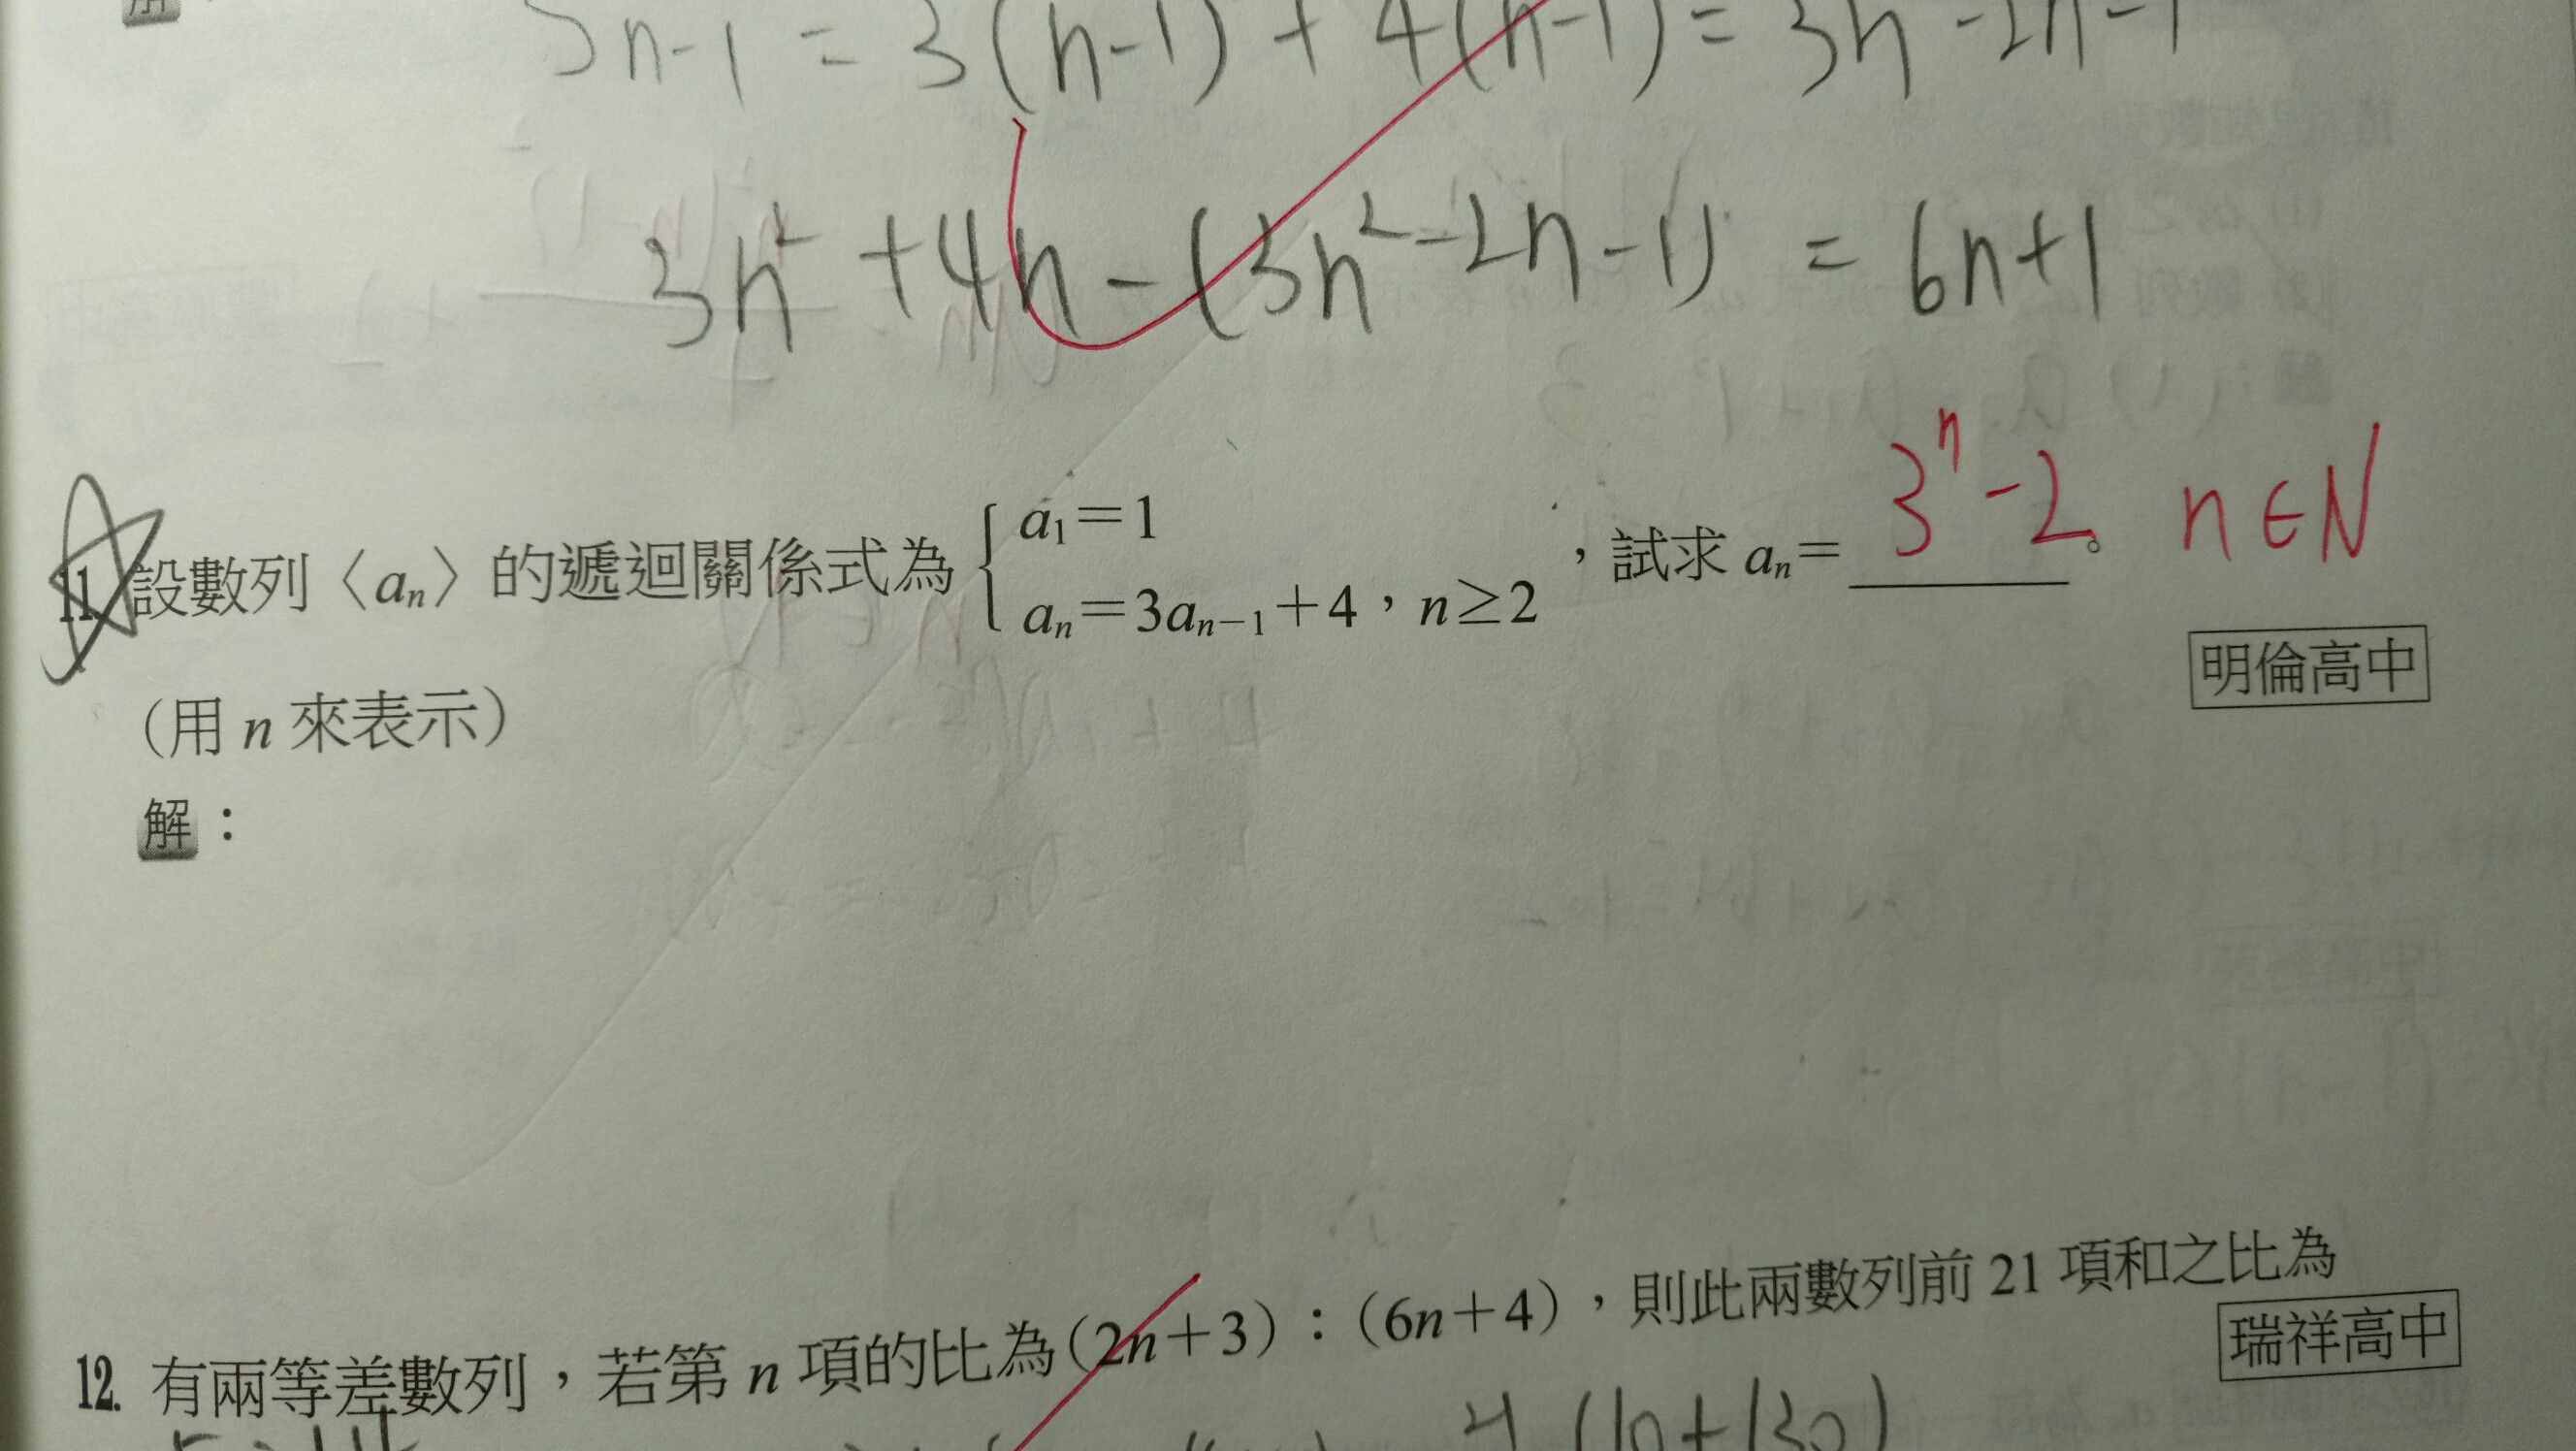 S n-1 = 3(n-1) + 4(n-1) = 3n -2n-1
3n²+4n-(3n²-2n-1) = 6n+1
11. 設數列〈aₙ〉的遞迴關係式為 { a₁=1
aₙ=3aₙ₋₁+4,n≥2 ,試求 aₙ= 3ⁿ-2。 n∈N
明倫高中
(用 n 來表示)
解:
12. 有兩等差數列,若第 n 項的比為(2n+3):(6n+4),則此兩數列前 21 項和之比為
瑞祥高中